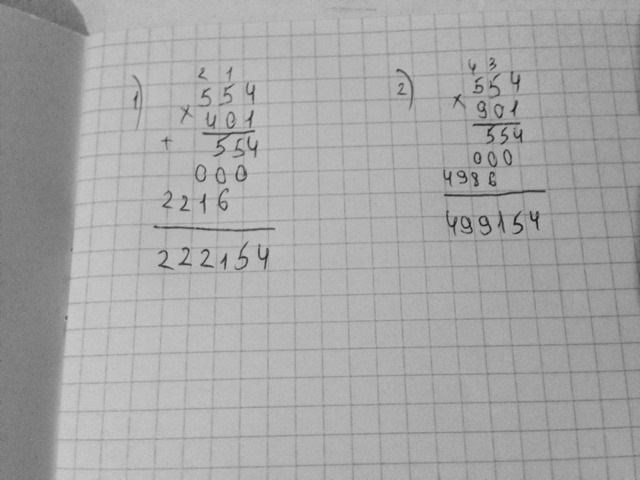 1)
2 1
554
× 401
+ 554
000
2216
222154
2)
4 3
554
× 901
554
000
4986
499154